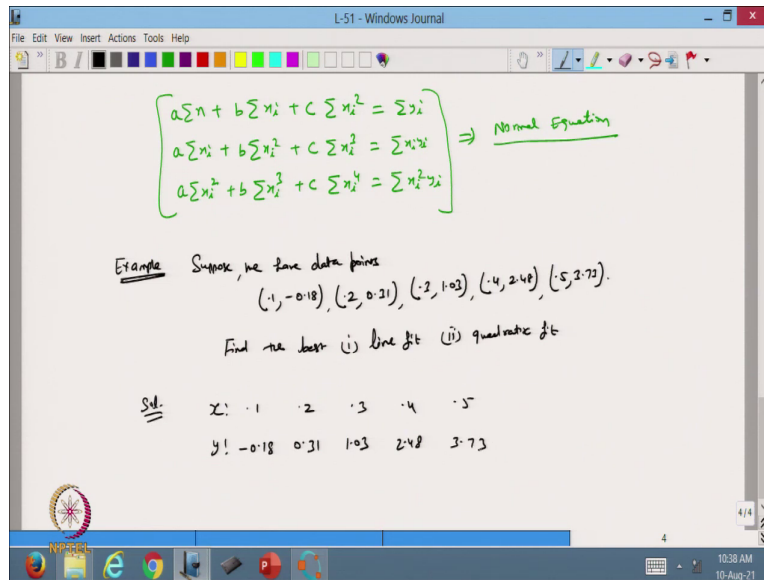 L-51 - Windows Journal
File Edit View Insert Actions Tools Help
a∑n + b∑xi + c∑xi² = ∑yi
a∑xi + b∑xi² + c∑xi³ = ∑xiyi ⇒ Normal Equation
a∑xi² + b∑xi³ + c∑xi⁴ = ∑xi²yi
Example Suppose, we have data points
(.1, -0.18), (.2, 0.31), (.3, 1.03), (.4, 2.48), (.5, 3.73).
Find the best (i) line fit (ii) quadratic fit
Sol. x: .1 .2 .3 .4 .5
y: -0.18 0.31 1.03 2.48 3.73
4/4
4
NPTEL
10:38 AM
10-Aug-21